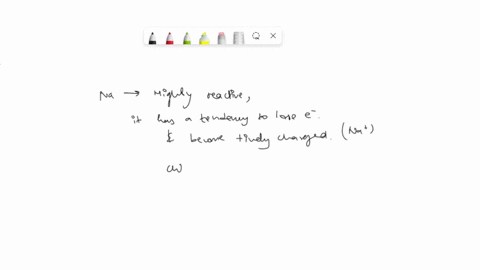 Na → Highly reactive,
it has a tendency to lose e⁻
& become +ively charged. (Na⁺)